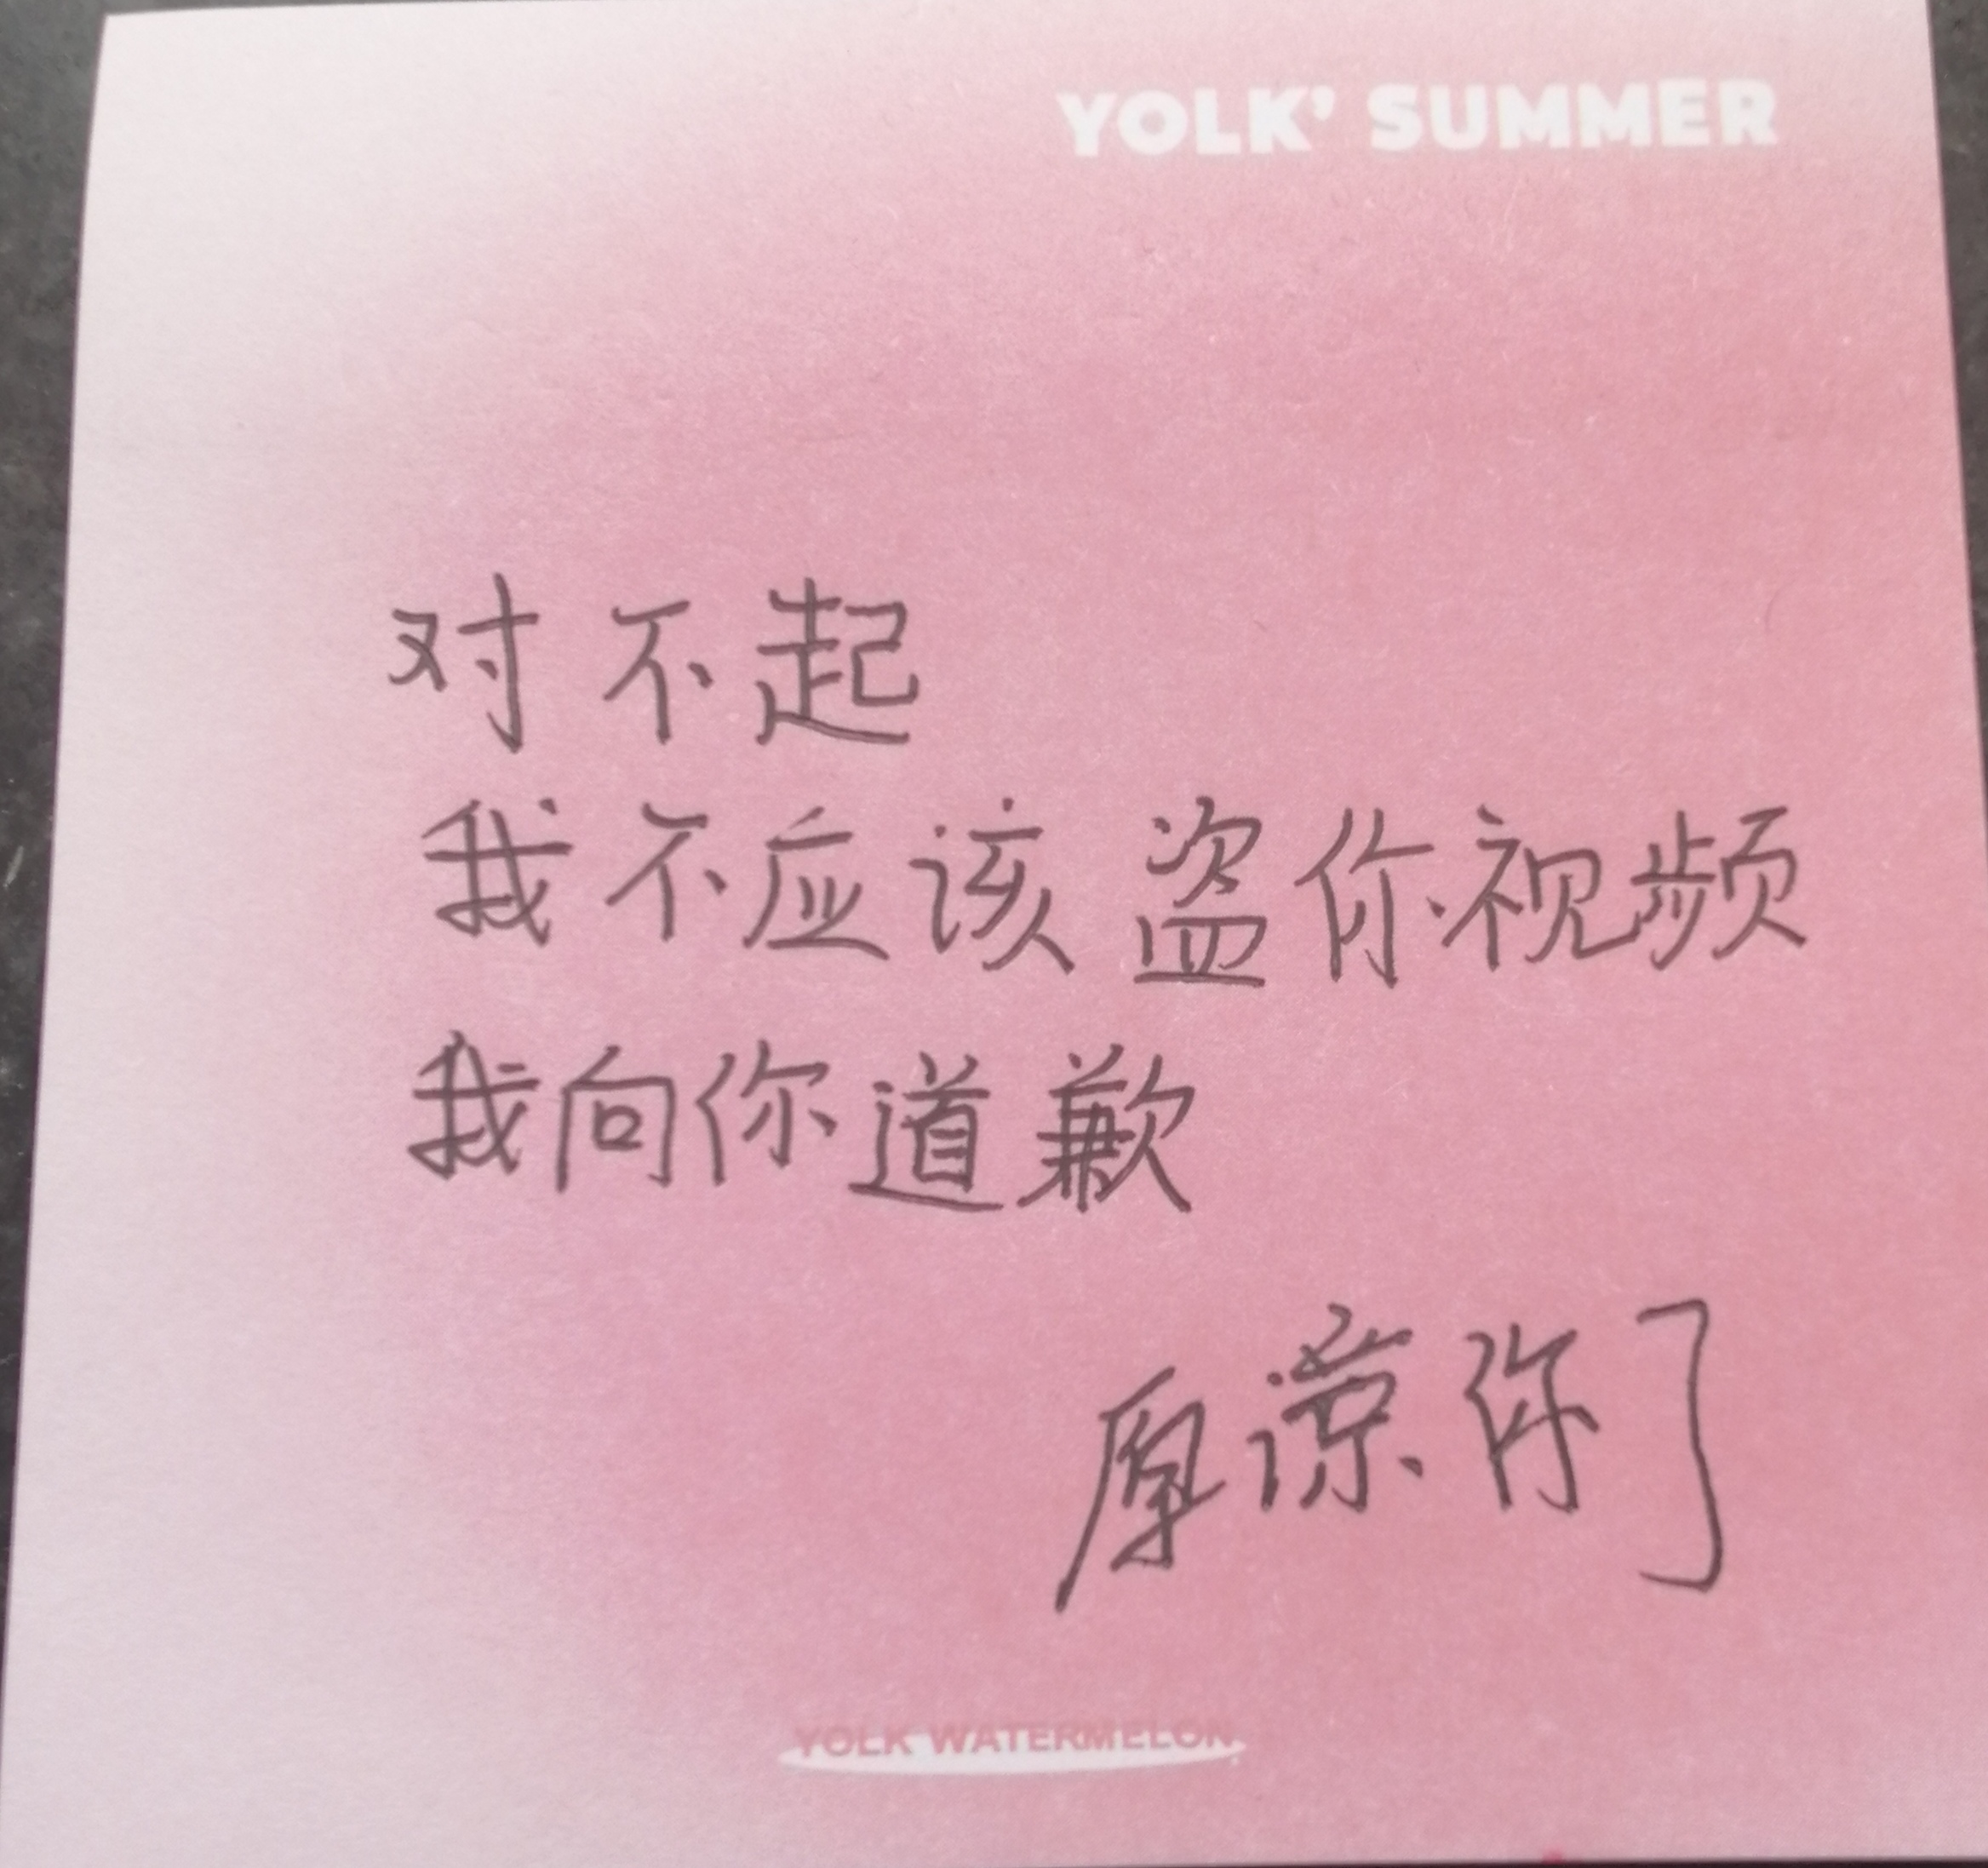 YOLK' SUMMER
对不起
我不应该盗你视频
我向你道歉
原谅你了
YOLK WATERMELON